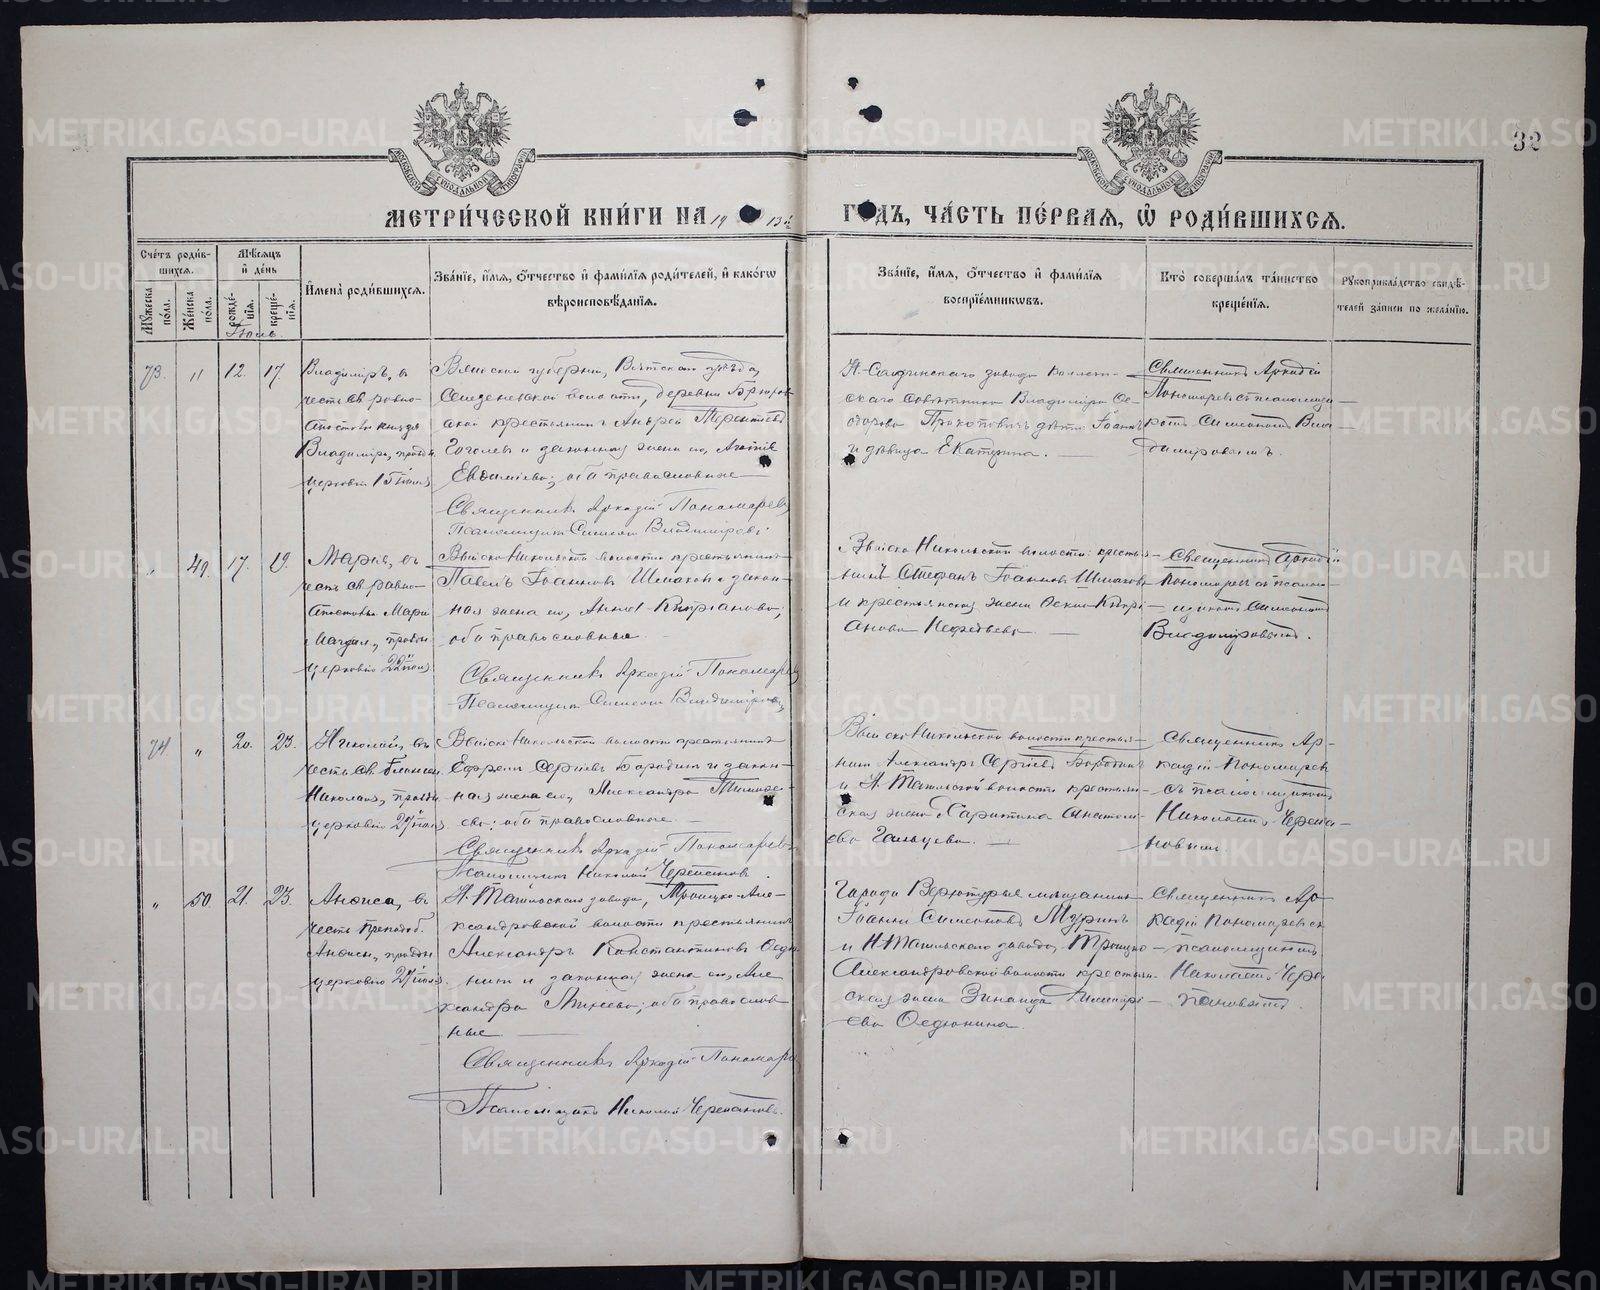 32
МЕТРИ́ЧЕСКОЙ КНИ́ГИ НА 1913й ГОДЪ, ЧА́СТЬ ПЕ́РВАЯ, Ѿ РОДИ́ВШИХСЯ.
Сче́тъ роди́вшихся.
Му́жеска по́ла.
Же́нска по́ла.
Мѣ́сяцъ и де́нь
рожде́нїя.
креще́нїя.
Имена̀ роди́вшихся.
Зва́нїе, и́мя, о́тчество и фами́лїя роди́телей, и како́гѡ вѣроисповѣ́данїя.
Зва́нїе, и́мя, о́тчество и фами́лїя воспрїе́мникѡвъ.
Кто̀ соверша́лъ та́инство креще́нїя.
Рꙋкоприкла́дство свидѣ́телей за́писи по жела́нїю.
Іюль.
73. " 12. 17.
Владиміръ, въ
честь св. равно-
Апостола князя
Владиміра, празд.
церковію 15 іюля
Вятской губерніи, Вятскаго уѣзда,
волости, деревни
крестьянинъ Андрей Терентьевъ
Гоголевъ и законная жена его,
Евдокіева; оба православные
Священникъ Аркадій Пономаревъ
Псаломщикъ Симеонъ Владиміровъ
Н.-Салдинскаго завода Коллеж-
скаго Совѣтника Владиміра Ѳе-
дорова дѣти: Іоаннъ
и дѣвица Екатерина.
Священникъ Аркадій
Пономаревъ съ псаломщи-
комъ Симеономъ Вла-
диміровымъ.
" 49. 17. 19.
Марія, въ
честь св. равно-
Апостолы Маріи
Магдал., празд.
церковію 22 іюля
Выйско-Никольской волости крестьянинъ
Павелъ Іоанновъ Шмаковъ и закон-
ная жена его, Анна Кипріанова;
оба православные
Священникъ Аркадій Пономаревъ
Псаломщикъ Симеонъ Владиміровъ
Выйско-Никольской волости: крестья-
нинъ Стефанъ Іоанновъ Шмаковъ
и крестьянская жена Кипрі-
анова
Священникъ Аркадій
Пономаревъ съ псалом-
щикомъ Симеономъ
Владиміровымъ.
74 " 20. 23.
Николай, въ
честь св. Блажен.
Николая, праздн.
церковію 27 іюля
Выйско-Никольской волости крестьянинъ
Ефремъ Сергіевъ Бородинъ и закон-
ная жена его, Александра Тимоѳе-
ева; оба православные
Священникъ Аркадій Пономаревъ
Псаломщикъ Николай Черепановъ
Выйско-Никольской волости крестья-
нинъ Александръ Сергіевъ Бородинъ
и Н.-Тагильской волости крестьян-
ская жена Харитина Анатолі-
ева Гальцева.
Священникъ Ар-
кадій Пономаревъ
съ псаломщикомъ
Николаемъ Черепа-
новымъ.
" 50. 21. 23.
Анѳиса, въ
честь Преподоб.
Анѳисы, праздн.
церковію 27 іюля
Н.-Тагильскаго завода, Троицко-Але-
ксандровской волости крестьянинъ
Александръ Константиновъ Ѳедю-
нинъ и законная жена его, Але-
ксандра Михеева; оба православ-
ные
Священникъ Аркадій Пономаревъ
Псаломщикъ Николай Черепановъ.
Города Верхотурья мѣщанинъ
Іоаннъ Симеоновъ Муринъ
и Н.-Тагильскаго завода, Троицко-
Александровской волости крестьян-
ская жена Зинаида
Ѳедюнина.
Священникъ Ар-
кадій Пономаревъ съ
псаломщикомъ
Николаемъ Чере-
пановымъ.
METRIKI.GASO-URAL.RU